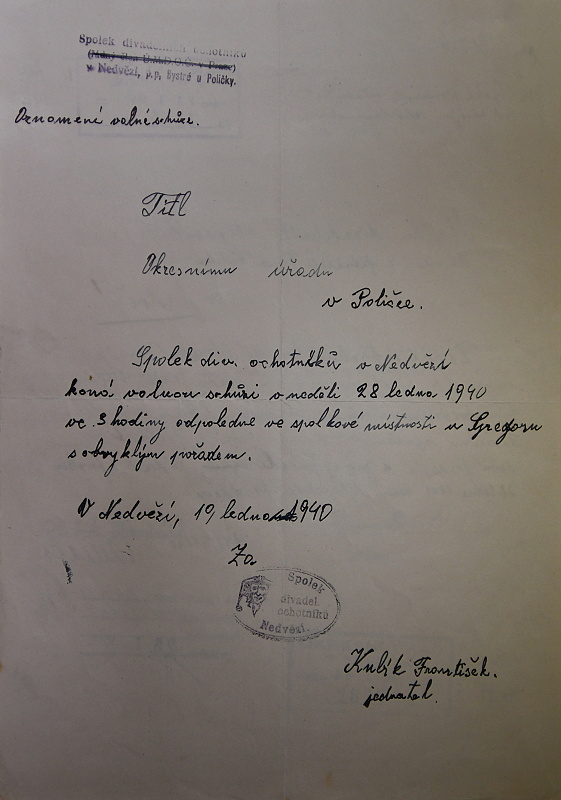 Spolek divadelních ochotníků
v Nedvězí, p.p. Bystré u Poličky.
Oznamené valné schůze.
Titl
Okresnímu úřadu
v Poličce.
Spolek div. ochotníků v Nedvězí
koná valnou schůzi v neděli 28 ledna 1940
ve 3 hodiny odpoledne ve spolkové místnosti u Gregoru
s obvyklým pořadem.
V Nedvězí, 19 ledna 1940
Za
Spolek
divadel.
ochotníků
Nedvězí.
Kubík František.
jednatel.